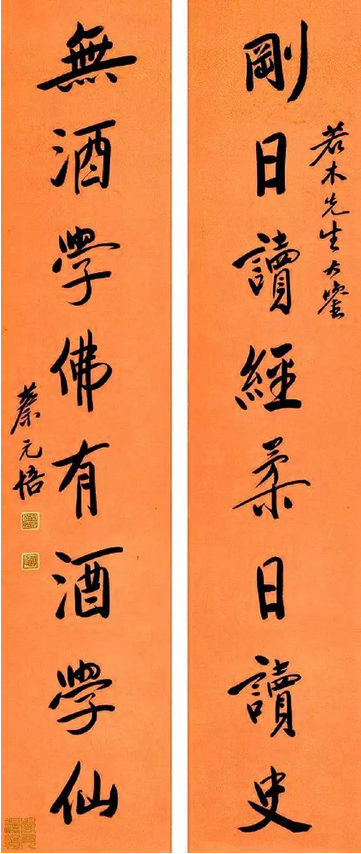 剛日讀經柔日讀史
若木先生大鑒
無酒學佛有酒學仙
蔡元培